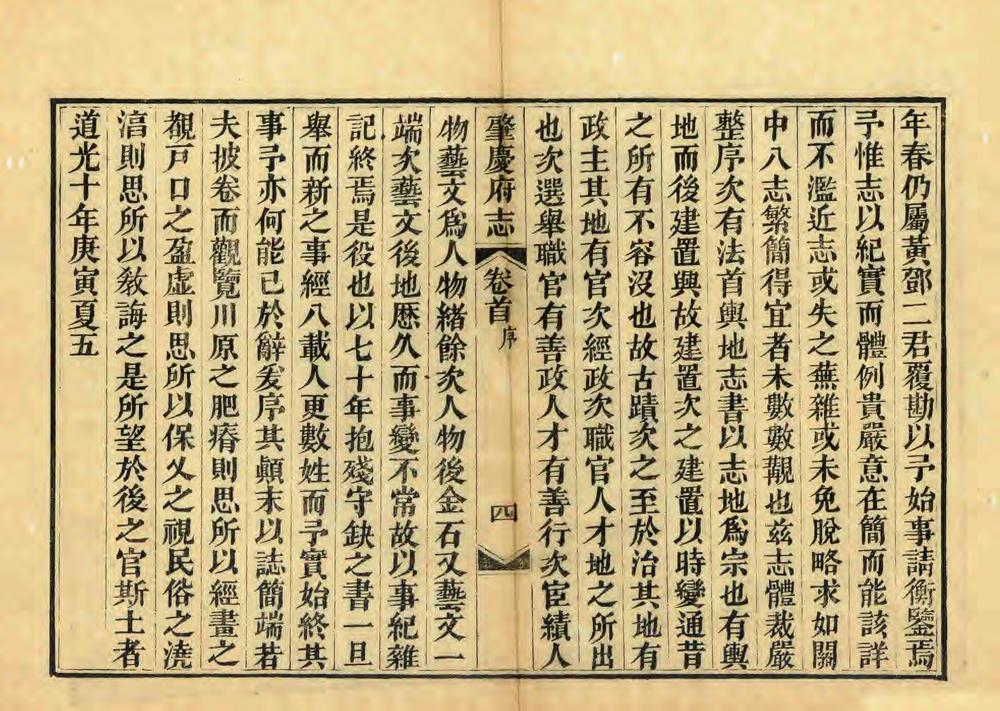 年春仍屬黃鄧二君覆勘以予始事請衡鑒焉
予惟志以紀實而體例貴嚴意在簡而能該詳
而不濫近志或失之蕪雜或未免脫略求如關
中八志繁簡得宜者未數數覯也茲志體裁嚴
整序次有法首輿地志書以志地為宗也有輿
地而後建置興故建置次之建置以時變通昔
之所有不容沒也故古蹟次之至於治其地有
政主其地有官次經政次職官人才地之所出
也次選舉職官有善政人才有善行次宦績人
肇慶府志 卷首 序 四
物藝文為人物緒餘次人物後金石又藝文一
端次藝文後地歷久而事變不常故以事紀雜
記終焉是役也以七十年抱殘守缺之書一旦
舉而新之事經八載人更數姓而予實始終其
事予亦何能已於辭爰序其顛末以誌簡端若
夫披卷而觀覽川原之肥瘠則思所以經畫之
覩戸口之盈虛則思所以保乂之視民俗之澆
湻則思所以敎誨之是所望於後之官斯土者
道光十年庚寅夏五